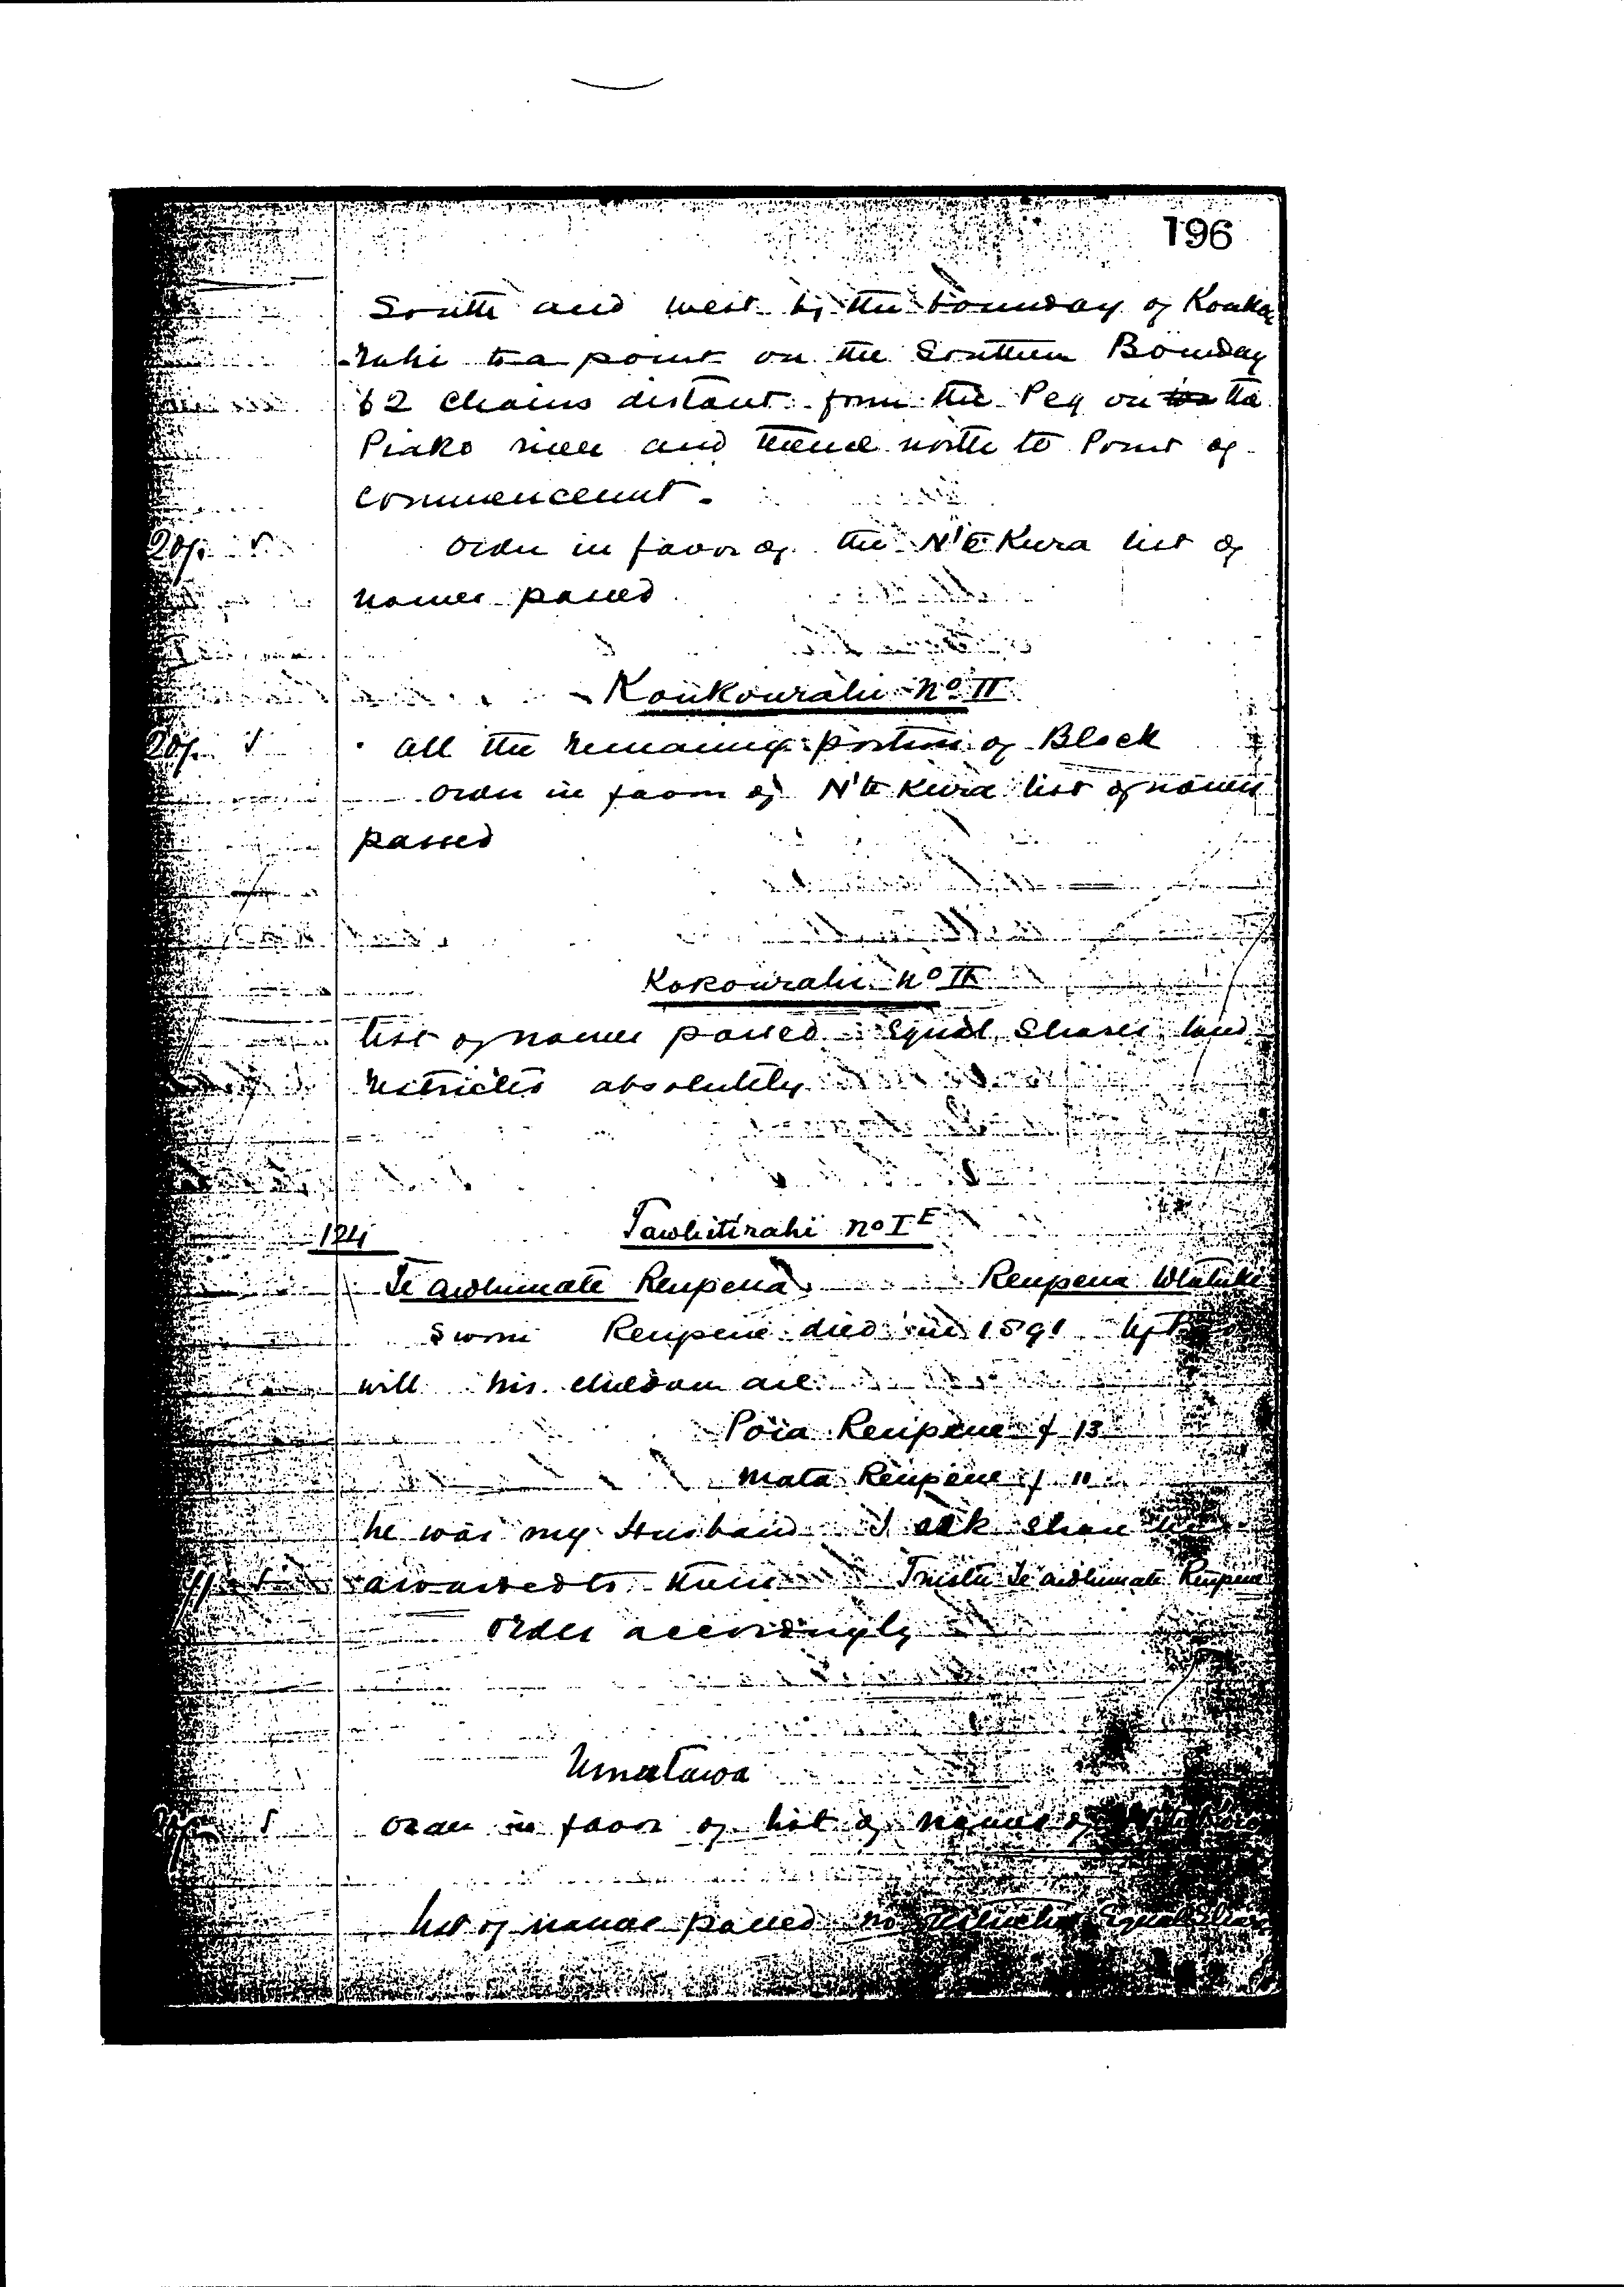 196
South and west by the boundary of Kouka
rahi to a point on the Southern Bounday
62 chains distant from the Peg on the
Piako river and thence north to Point of
commencement.
20/- Order in favor of the N'te Kura list of
names passed
Koukourahi No II
20/- all the remaining portion of Block
order in favor of N'te Kura list of names
passed
Kokourahi No II
list of names passed Equal Shares land
restricted absolutely
124 Tawhitirahi No I E
Te Awhimate Reupena Reupena
Sworn Reupene died in 1891 left no
will his children are
Poia Reupene f 13
Mata Reupene f 11
he was my Husband I ask share be
awarded to them Trustee Te Awhimate Reupena
Order accordingly
Umutawa
Order in favor of list of names of
list of names passed no restriction Equal Shares